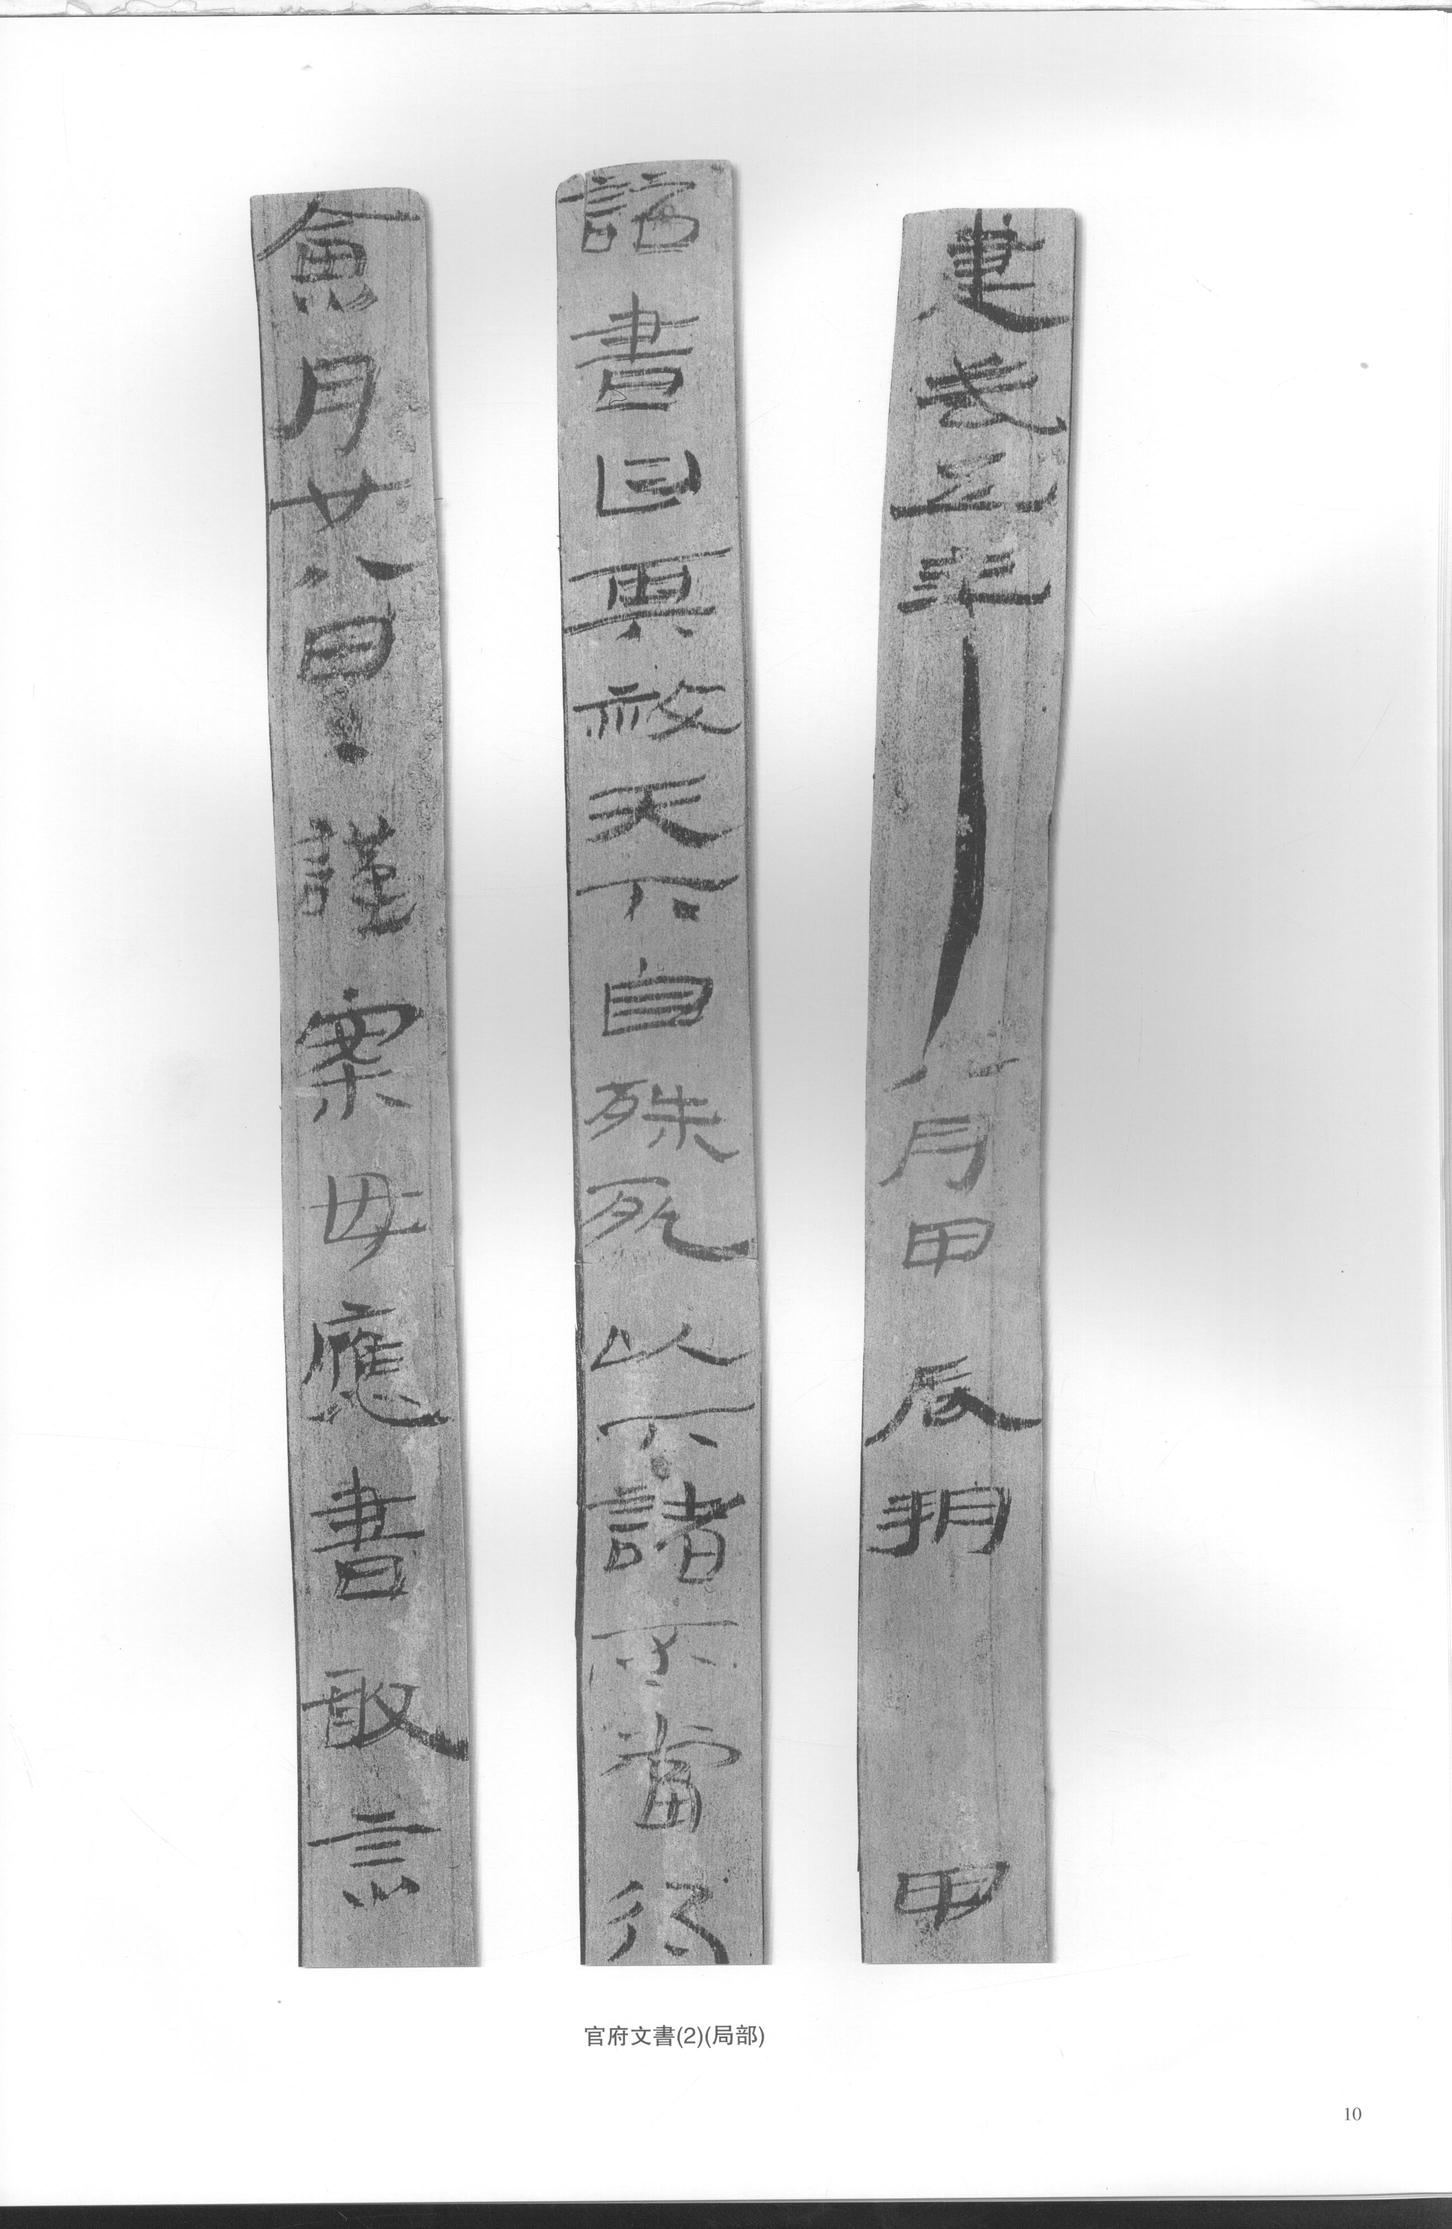 建武五年八月甲辰朔 甲
詔書曰其赦天下自殊死以下諸不當得
會月廿八日・謹案毋應書敢言
官府文書(2)(局部)
10